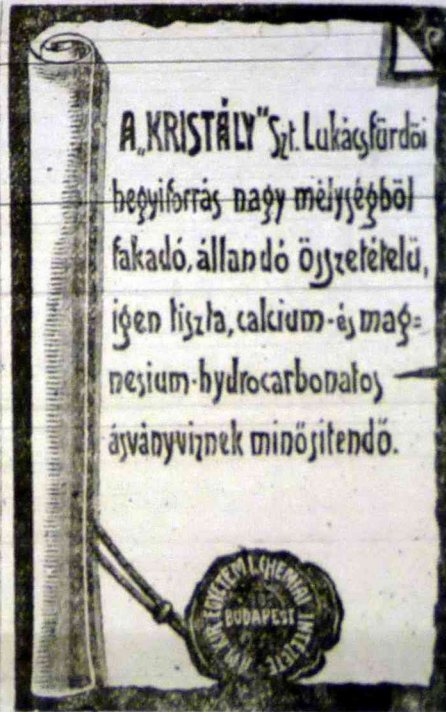 A „KRISTÁLY” Szt. Lukácsfürdői
hegyiforrás nagy mélységből
fakadó, állandó összetételű,
igen tiszta, calcium-és mag=
nesium-hydrocarbonatos
ásványviznek minősitendő.
EGYETEMI I. CHEMIAI INTÉZETE
BUDAPEST